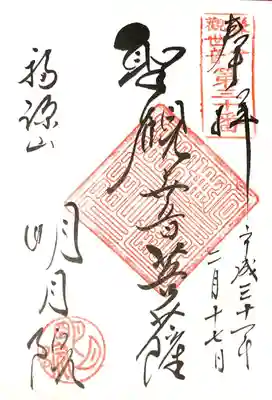 奉拝
觀世音第三十
平成三十一年
二月十七日
聖観音菩薩
福源山
明月院